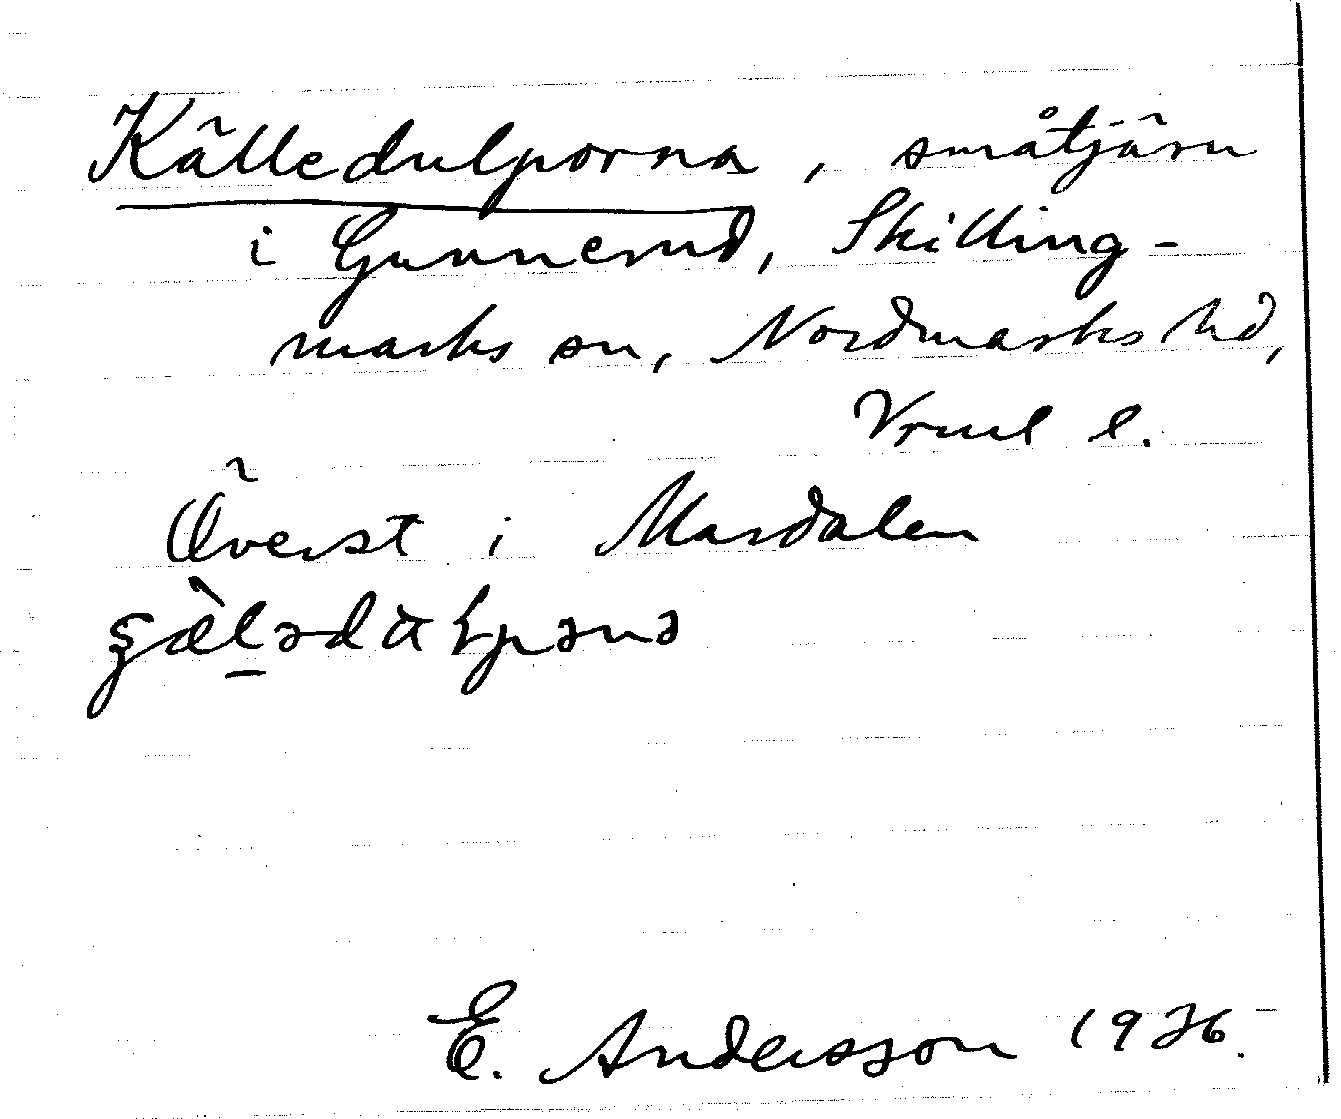 Källedulporna, småtjärn
i Gunnerud, Skilling-
marks sn, Nordmarks hd,
Vrml l.
Överst i Mardalen
E. Andersson 1926.